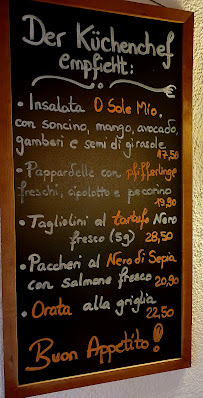 Der Küchenchef
empfiehlt:
• Insalata O Sole Mio,
con soncino, mango, avocado,
gamberi e semi di girasole
17,50
• Pappardelle con pfifferlinge
freschi, cipolotto e pecorino
19,90
• Tagliolini al tartufo Nero
fresco (5g) 28,50
• Paccheri al Nero di Sepia
con salmone fresco 20,90
• Orata alla griglia
22,50
Buon Appetito!